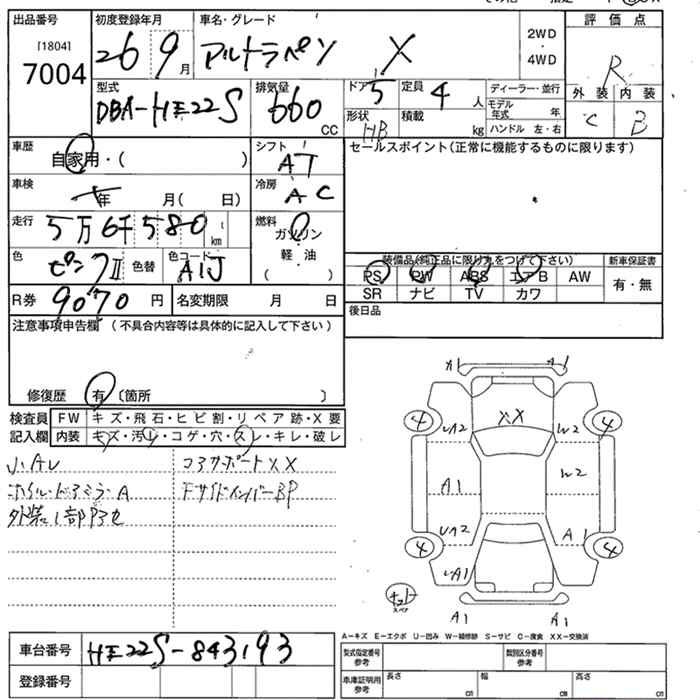 出品番号
[1804]
7004
初度登録年月
26 9月
車名・グレード
アルトラペン X
2WD
・
4WD
評価点
R
外装 内装
C B
型式
DBA-HE22S
排気量
660
CC
ドア 5
形状 HB
定員 4 人
積載 kg
ディーラー・並行
モデル年式 年
ハンドル 左・右
車歴
自家用・( )
シフト
AT
セールスポイント(正常に機能するものに限ります)
車検
年 月( 日)
冷房
AC
走行
5万6千580
km
燃料
ガソリン
軽油
( )
色
ピンクII
色替
色コード
A1J
装備品(純正品に限り丸をつけて下さい)
新車保証書
PS PW ABS エアB AW
有・無
SR ナビ TV カワ
R券 9070円
名変期限 月 日
後日品
注意事項申告欄 (不具合内容等は具体的に記入して下さい)
修復歴 有 〔箇所 〕
検査員記入欄
FW キズ・飛石・ヒビ割・リペア跡・X要
内装 キズ・汚レ・コゲ・穴・スレ・キレ・破レ
小AU
コアサポートXX
ホイル・ドアミラ・A
Fサイドメンバー BP
A1 A1
XX
4 4
UA2 W2
A1 W2
UA2 A1
4 4
UA1
スペア
A1 A1
A-キズ E-エクボ U-凹み W-補修跡 S-サビ C-腐食 XX-交換済
車台番号 HE22S-843193
登録番号
型式指定番号 参考
類別区分番号 参考
車庫証明用 参考
長さ cm
幅 cm
高さ cm